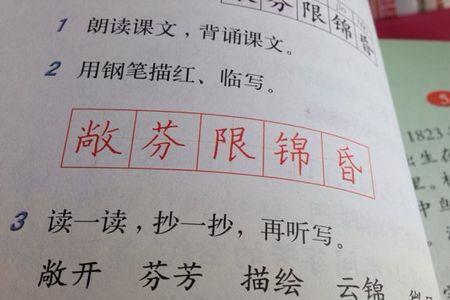 芬限锦昏
1 朗读课文，背诵课文。
2 用钢笔描红、临写。
敞芬限锦昏
3 读一读，抄一抄，再听写。
敞开 芬芳 描绘 云锦
5
1823
出生在
里。